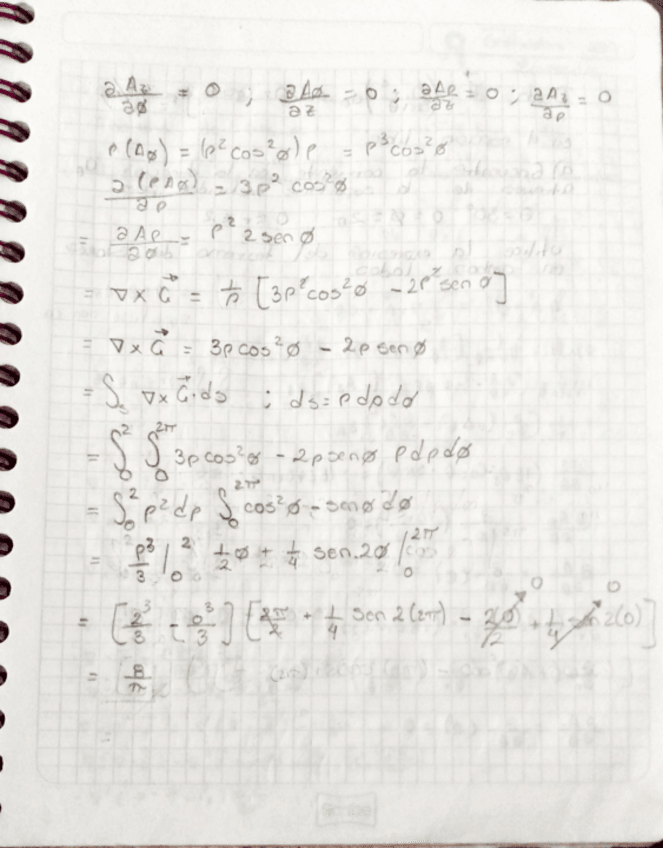 ∂Az/∂ø = 0 ; ∂Aø/∂z = 0 ; ∂Aρ/∂z = 0 ; ∂Az/∂ρ = 0
ρ(Aø) = (ρ² cos²ø) ρ = ρ³cos²ø
∂(ρAø)/∂ρ = 3ρ² cos²ø
= ∂Aρ/∂ø = ρ² 2 sen ø
= ∇ x G⃗ = 1/ρ [3ρ² cos²ø - 2ρ² sen ø]
= ∇ x G⃗ = 3ρ cos²ø - 2ρ sen ø
= ∫s ∇ x G⃗ · ds ; ds = ρ dρ dø
= ∫₀² ∫₀^2π 3ρ cos²ø - 2ρ sen ø ρ dρ dø
= ∫₀² ρ² dρ ∫₀^2π cos²ø - sen ø dø
= ρ³/3 |₀² 1/2 ø + 1/4 sen 2ø |₀^2π
= [2³/3 - 0³/3] [2π/2 + 1/4 sen 2(2π) - 2(0)/2 0 + 1/4 sen 2(0) 0]
= 8/π
=